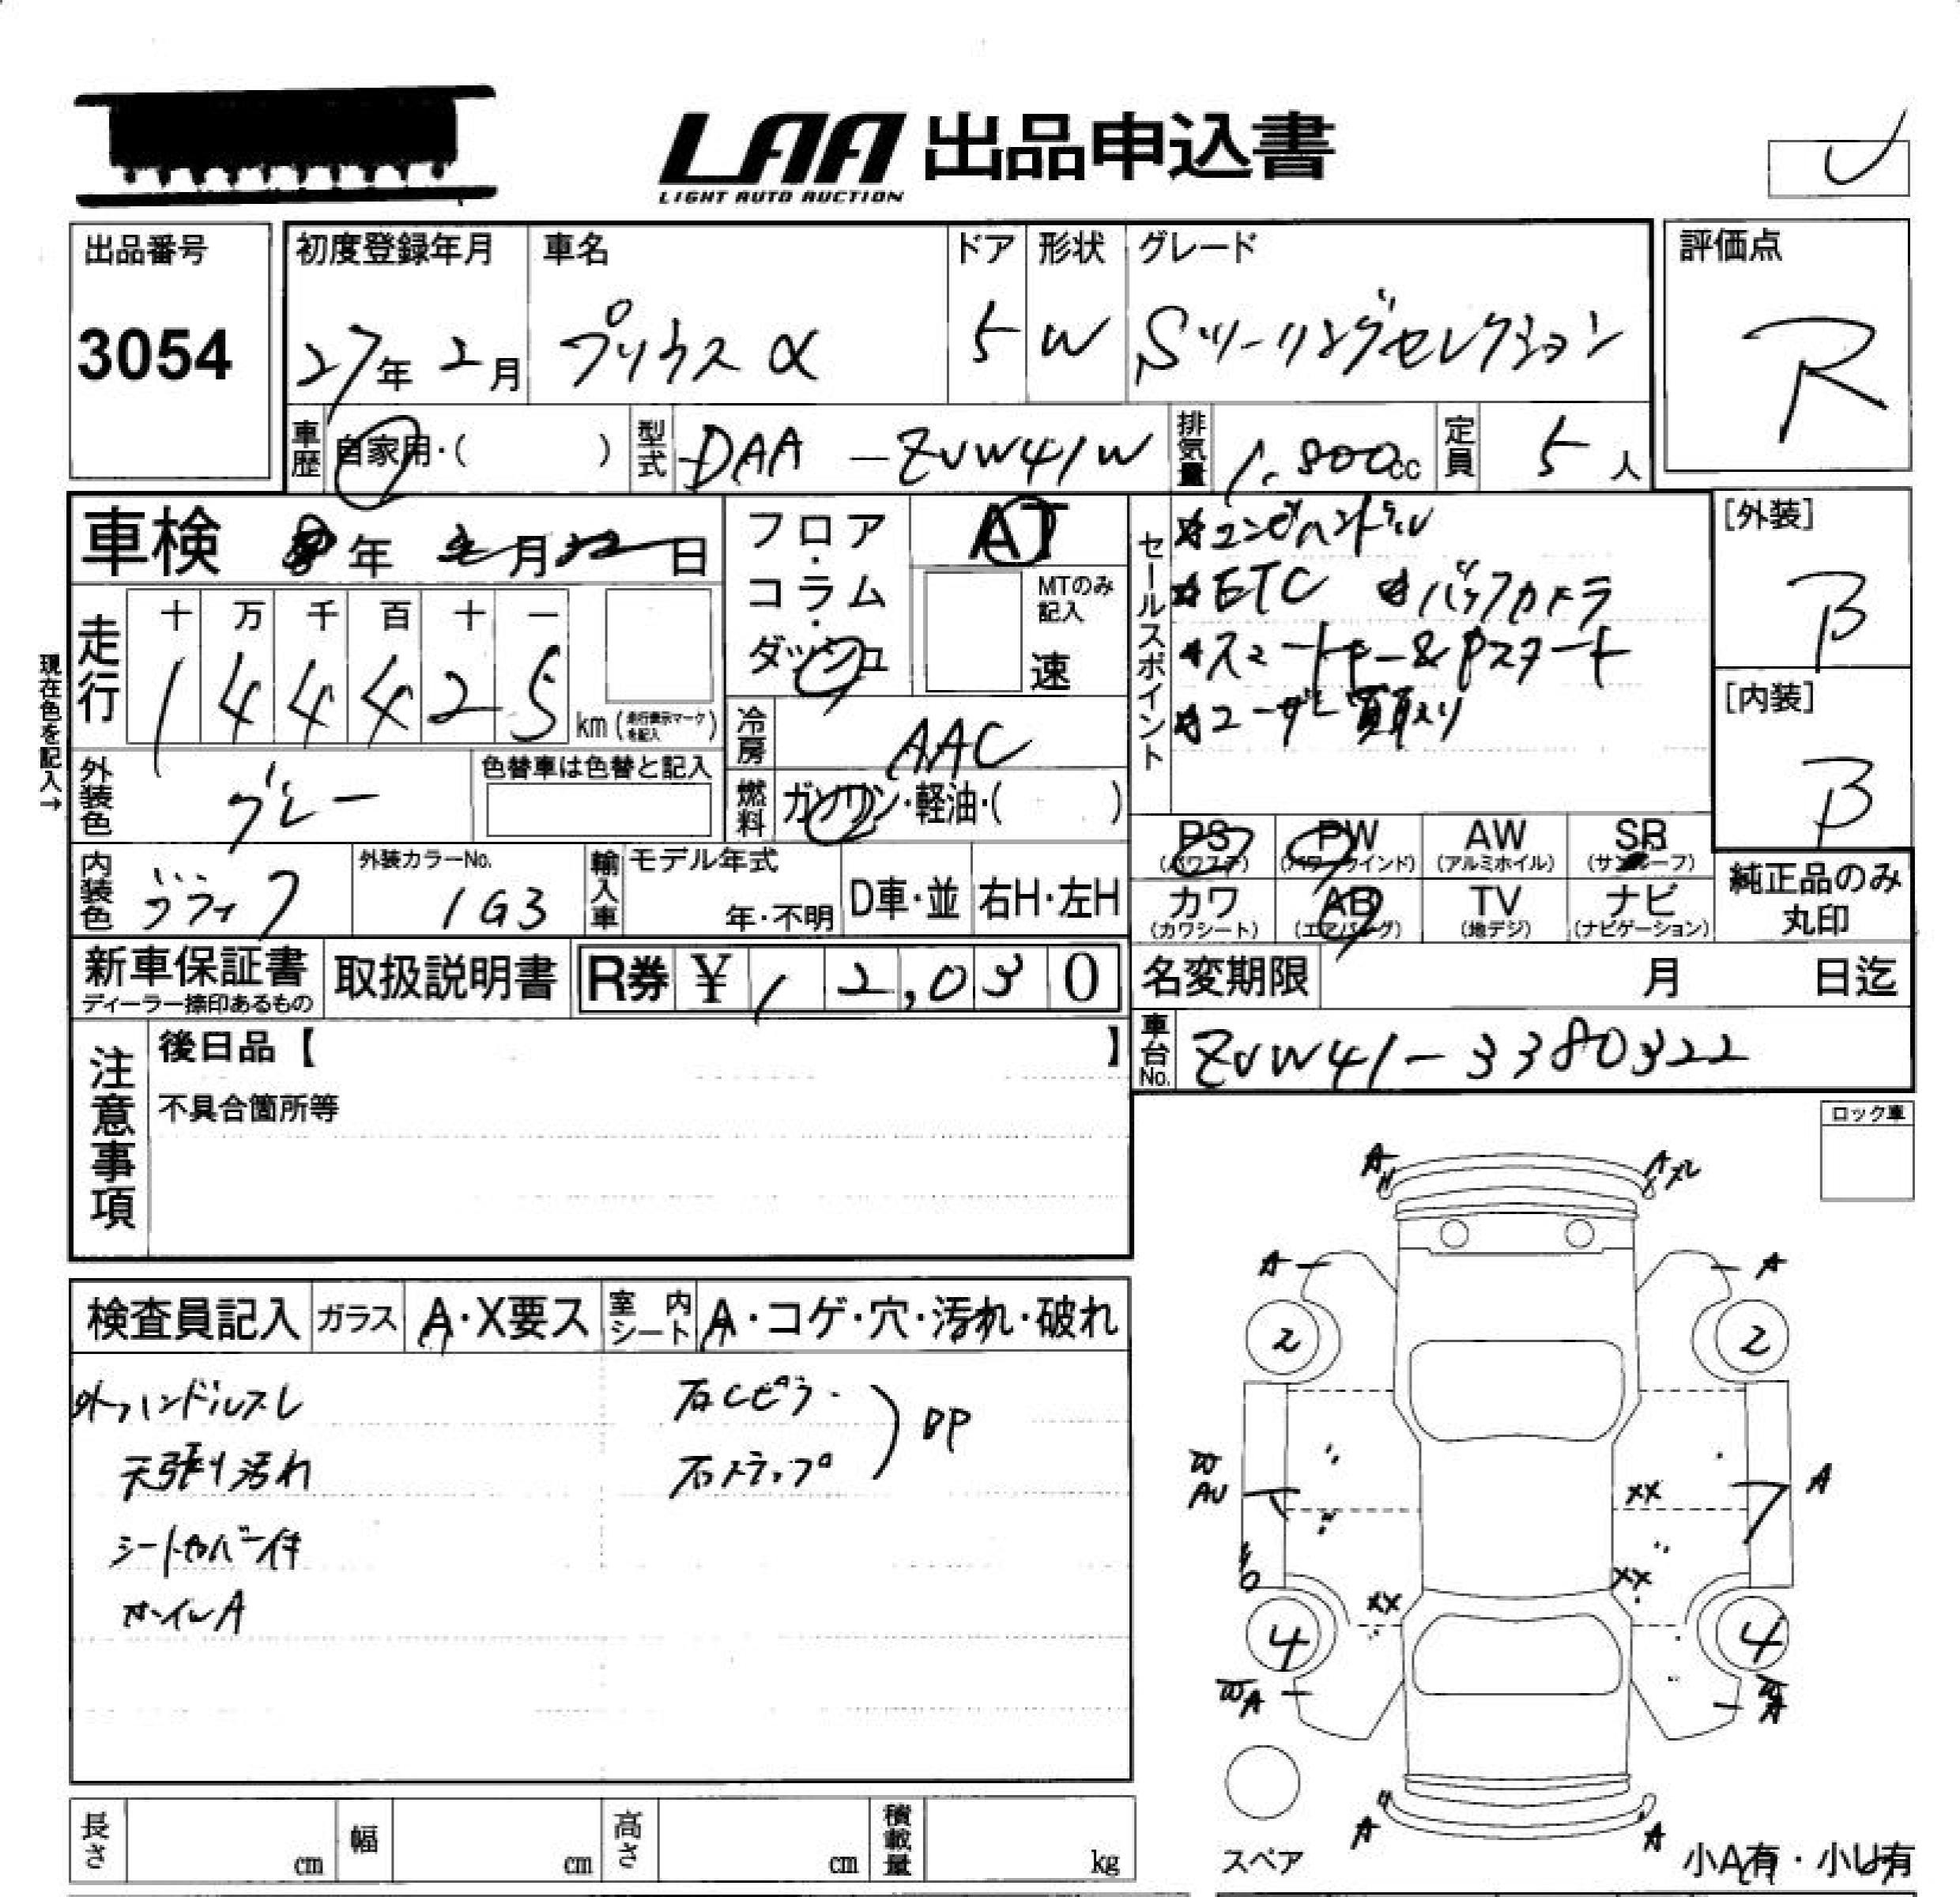 LAA 出品申込書
LIGHT AUTO AUCTION
出品番号
3054
初度登録年月
27年 2月
車名
プリウス α
ドア
5
形状
W
グレード
Sツーリングセレクション
評価点
R
車歴 自家用・( )
型式 DAA-ZVW41W
排気量 1.800cc
定員 5人
車検 年 月 日
フロア・コラム・ダッシュ
AT
MTのみ記入
速
セールスポイント
ETC バックカメラ
スマートキー&Pスタート
ユーザー買取り
[外装]
B
[内装]
B
現在色を記入→
走行
十 万 千 百 十 一
1 4 4 4 2 5 km (走行表示マークを記入)
冷房 AAC
燃料 ガソリン・軽油・( )
外装色 グレー
色替車は色替と記入
内装色 ブラック
外装カラーNo.
1G3
輸入車
モデル年式
年・不明
D車・並
右H・左H
PS (パワステ)
PW (パワーウインド)
AW (アルミホイル)
SR (サンルーフ)
カワ (カワシート)
AB (エアバッグ)
TV (地デジ)
ナビ (ナビゲーション)
純正品のみ丸印
新車保証書
ディーラー捺印あるもの
取扱説明書
R券 ¥ 12,030
名変期限 月 日迄
車台No. ZVW41-3380322
注意事項
後日品【 】
不具合箇所等
ロック車
検査員記入
ガラス A・X要ス
室内シート A・コゲ・穴・汚れ・破れ
ハンドルスレ
天張り汚れ
シートカバー付
ホイルA
右Cピラー
右ステップ
BP
A
A
A
A
2
2
W
AU
A
XX
XX
XX
4
4
WA
A
A
スペア
小A有・小U有
長さ cm
幅 cm
高さ cm
積載量 kg